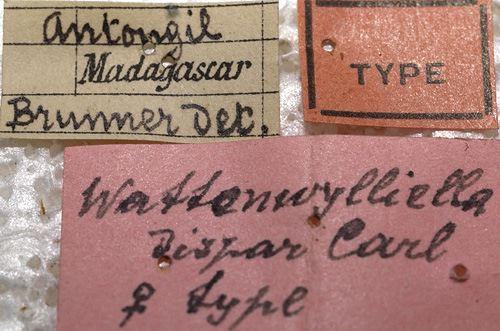 Antongil
Madagascar
Brunner Det.
TYPE
Wattenwylliella
dispar Carl
♀ type